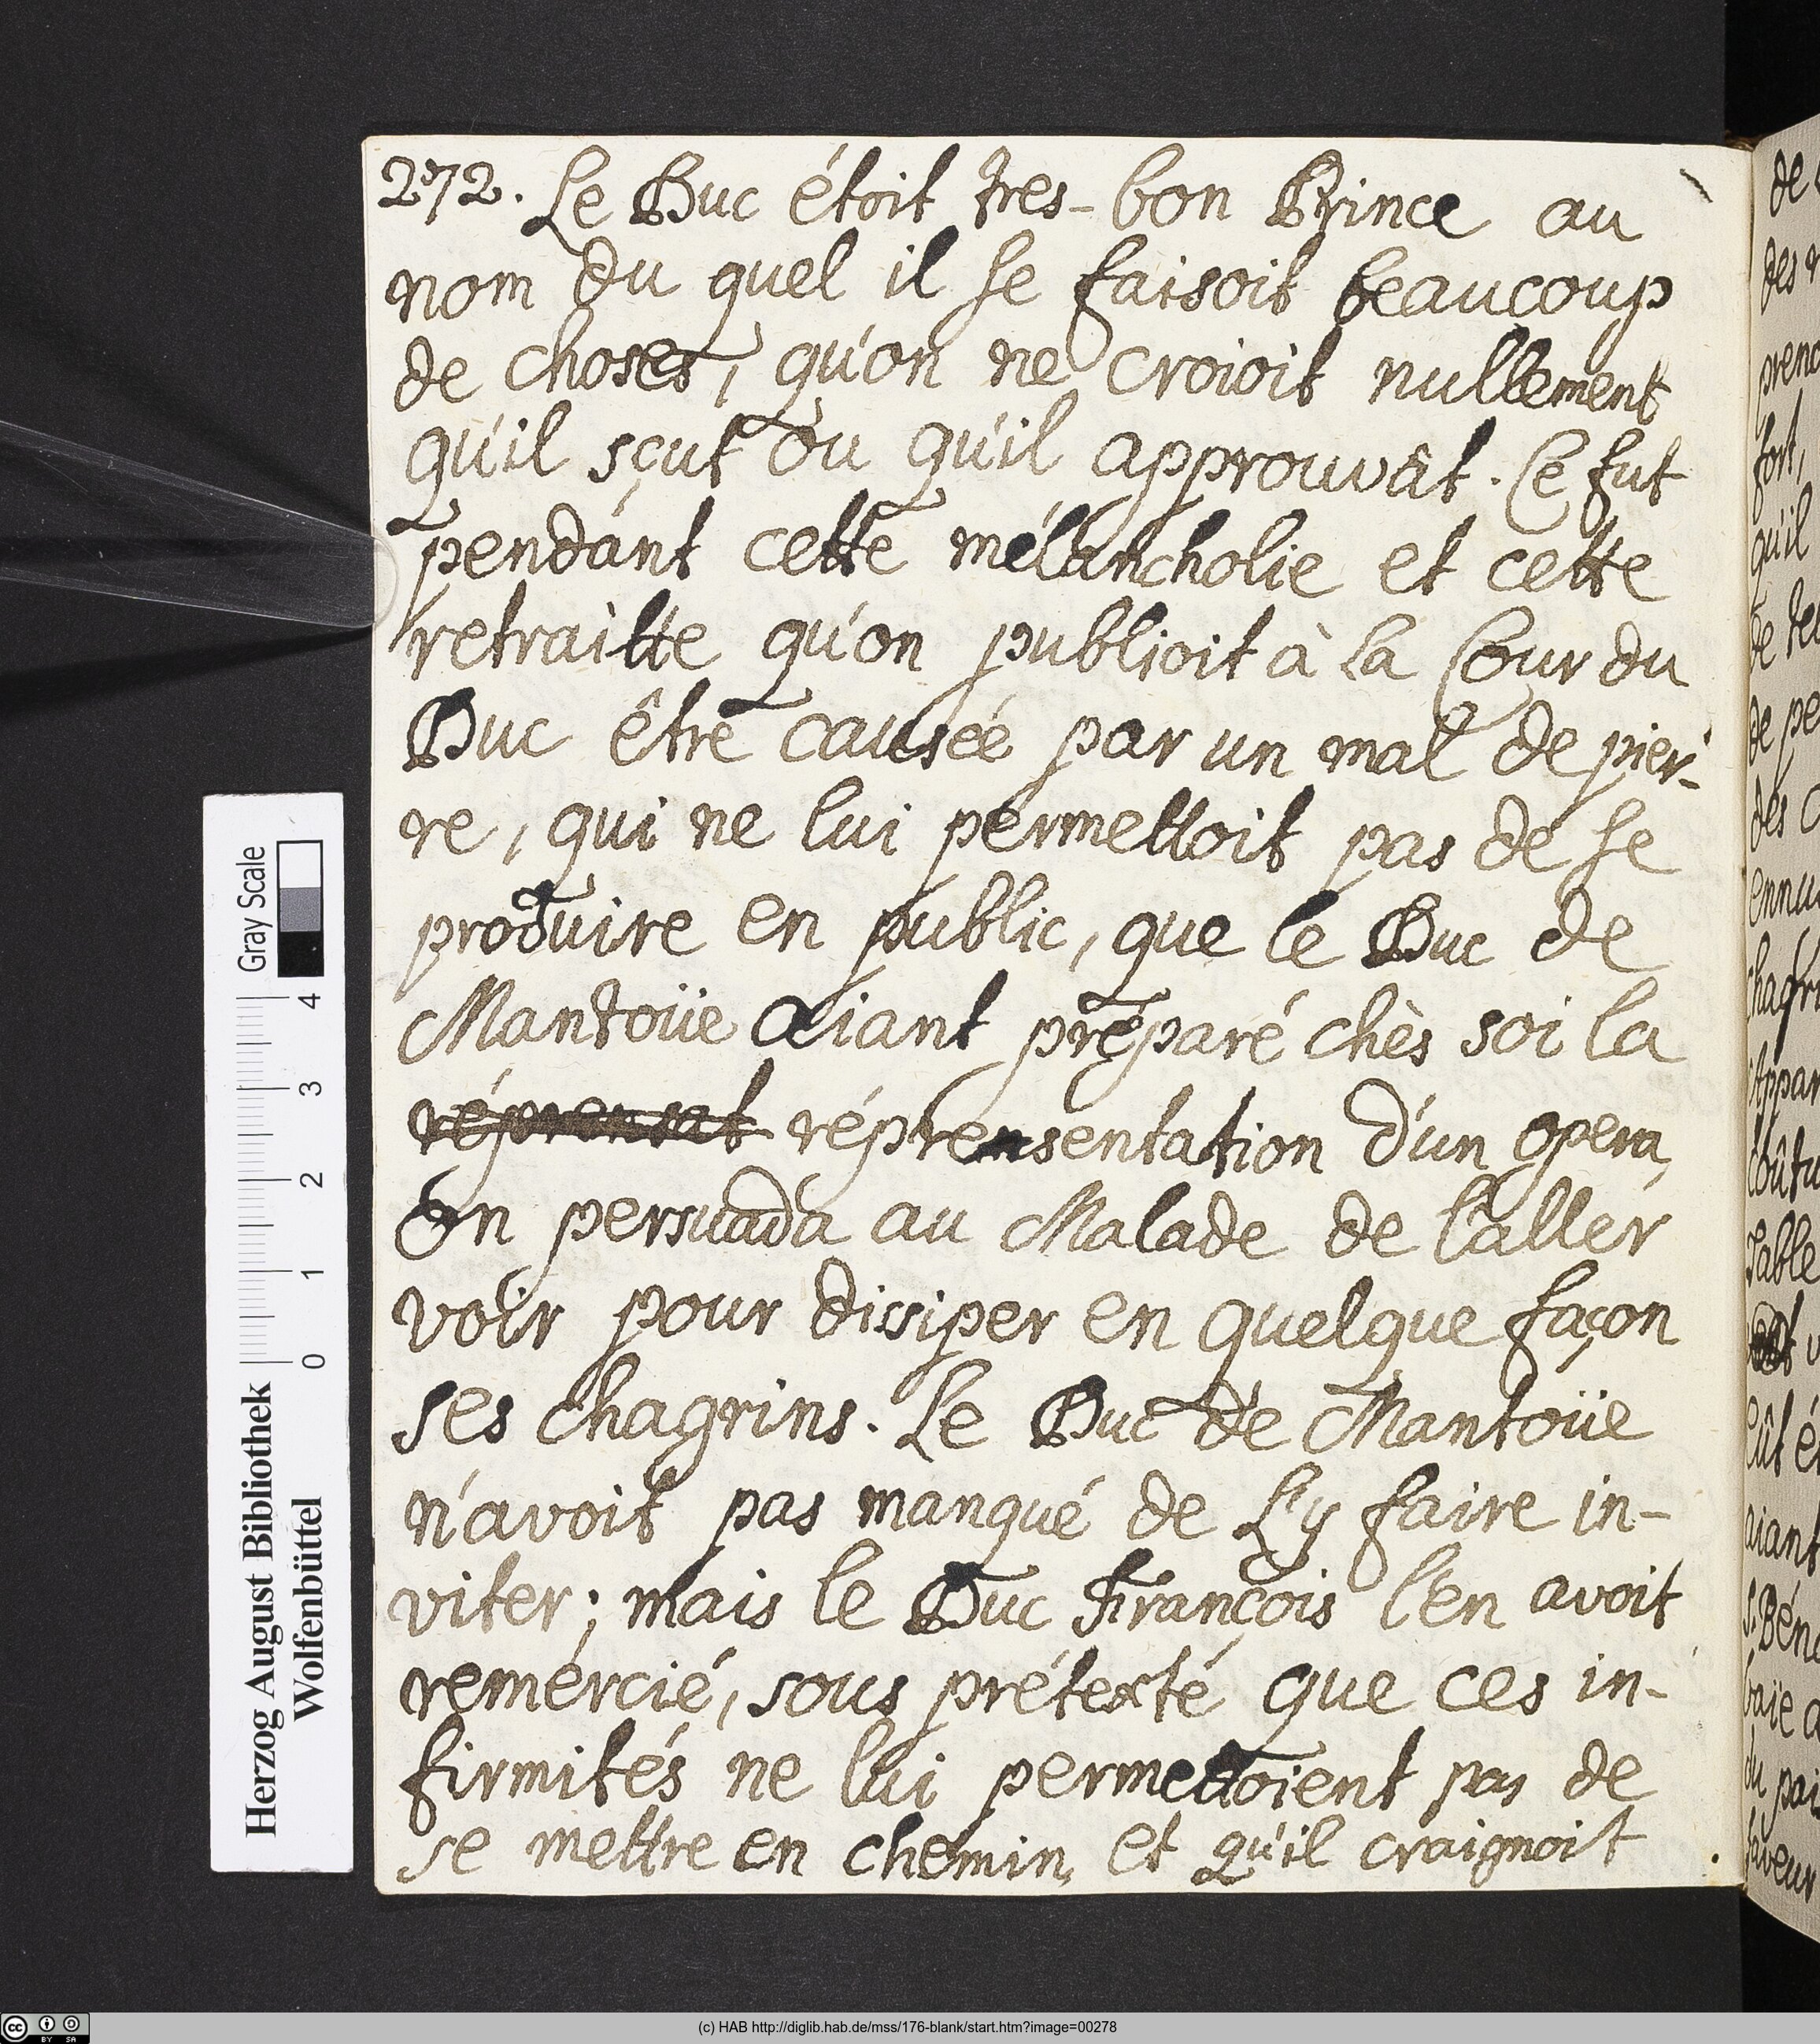 272. Le Duc étoit tres-bon Prince au
nom du quel il se faisoit beaucoup
de choses, qu'on ne croioit nullement
qu'il sçut ou qu'il approuvât. Ce fut
pendant cette mélancholie et cette
retraitte qu'on publioit à la Cour du
Duc être causée par un mal de pier-
re, qui ne lui permettoit pas de se
produire en public, que le Duc de
Mantoüe aiant préparé chès soi la
réprensentation d'un opera,
On persuada au Malade de l'aller
voir pour dissiper en quelque façon
ses chagrins. Le Duc de Mantoüe
n'avoit pas manqué de l'y faire in-
viter; mais le Duc François l'en avoit
remércié, sous prétexté que ces in-
firmités ne lui permettoient pas de
se mettre en chemin, et qu'il craignoit
Herzog August Bibliothek
Wolfenbüttel
Gray Scale
0 1 2 3 4
de
des
fort,
qu'il
de
de pe
des
Appar
table
aiant
du pai
faveur
(c) HAB http://diglib.hab.de/mss/176-blank/start.htm?image=00278
cc BY SA